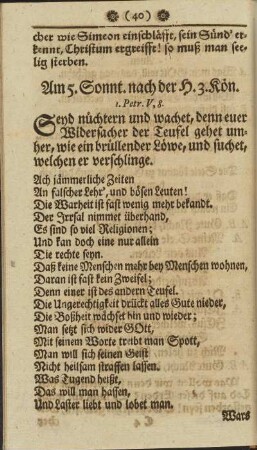 (40)
cher wie Simeon einschläfft, sein Sünd' er-
kennt, Christum ergreifft! so muß man see-
lig sterben.
Am 5. Sonnt. nach der H. 3. Kön.
1. Petr. V, 8.
Seyd nüchtern und wachet, denn euer
Widersacher der Teufel gehet um-
her, wie ein brüllender Löwe, und suchet,
welchen er verschlinge.
Ach jämmerliche Zeiten
An falscher Lehr', und bösen Leuten!
Die Warheit ist fast wenig mehr bekandt.
Der Irrsal nimmet überhand,
Es sind so viel Religionen;
Und kan doch eine nur allein
Die rechte seyn.
Daß keine Menschen mehr bey Menschen wohnen,
Daran ist fast kein Zweifel;
Denn einer ist des andern Teufel.
Die Ungerechtigkeit drückt alles Gute nieder,
Die Boßheit wächset hin und wieder;
Man setzt sich wider GOtt,
Mit seinem Worte treibt man Spott,
Man will sich seinen Geist
Nicht heilsam straffen lassen.
Was Tugend heißt,
Das will man hassen,
Und Laster liebt und lobet man.
Wars